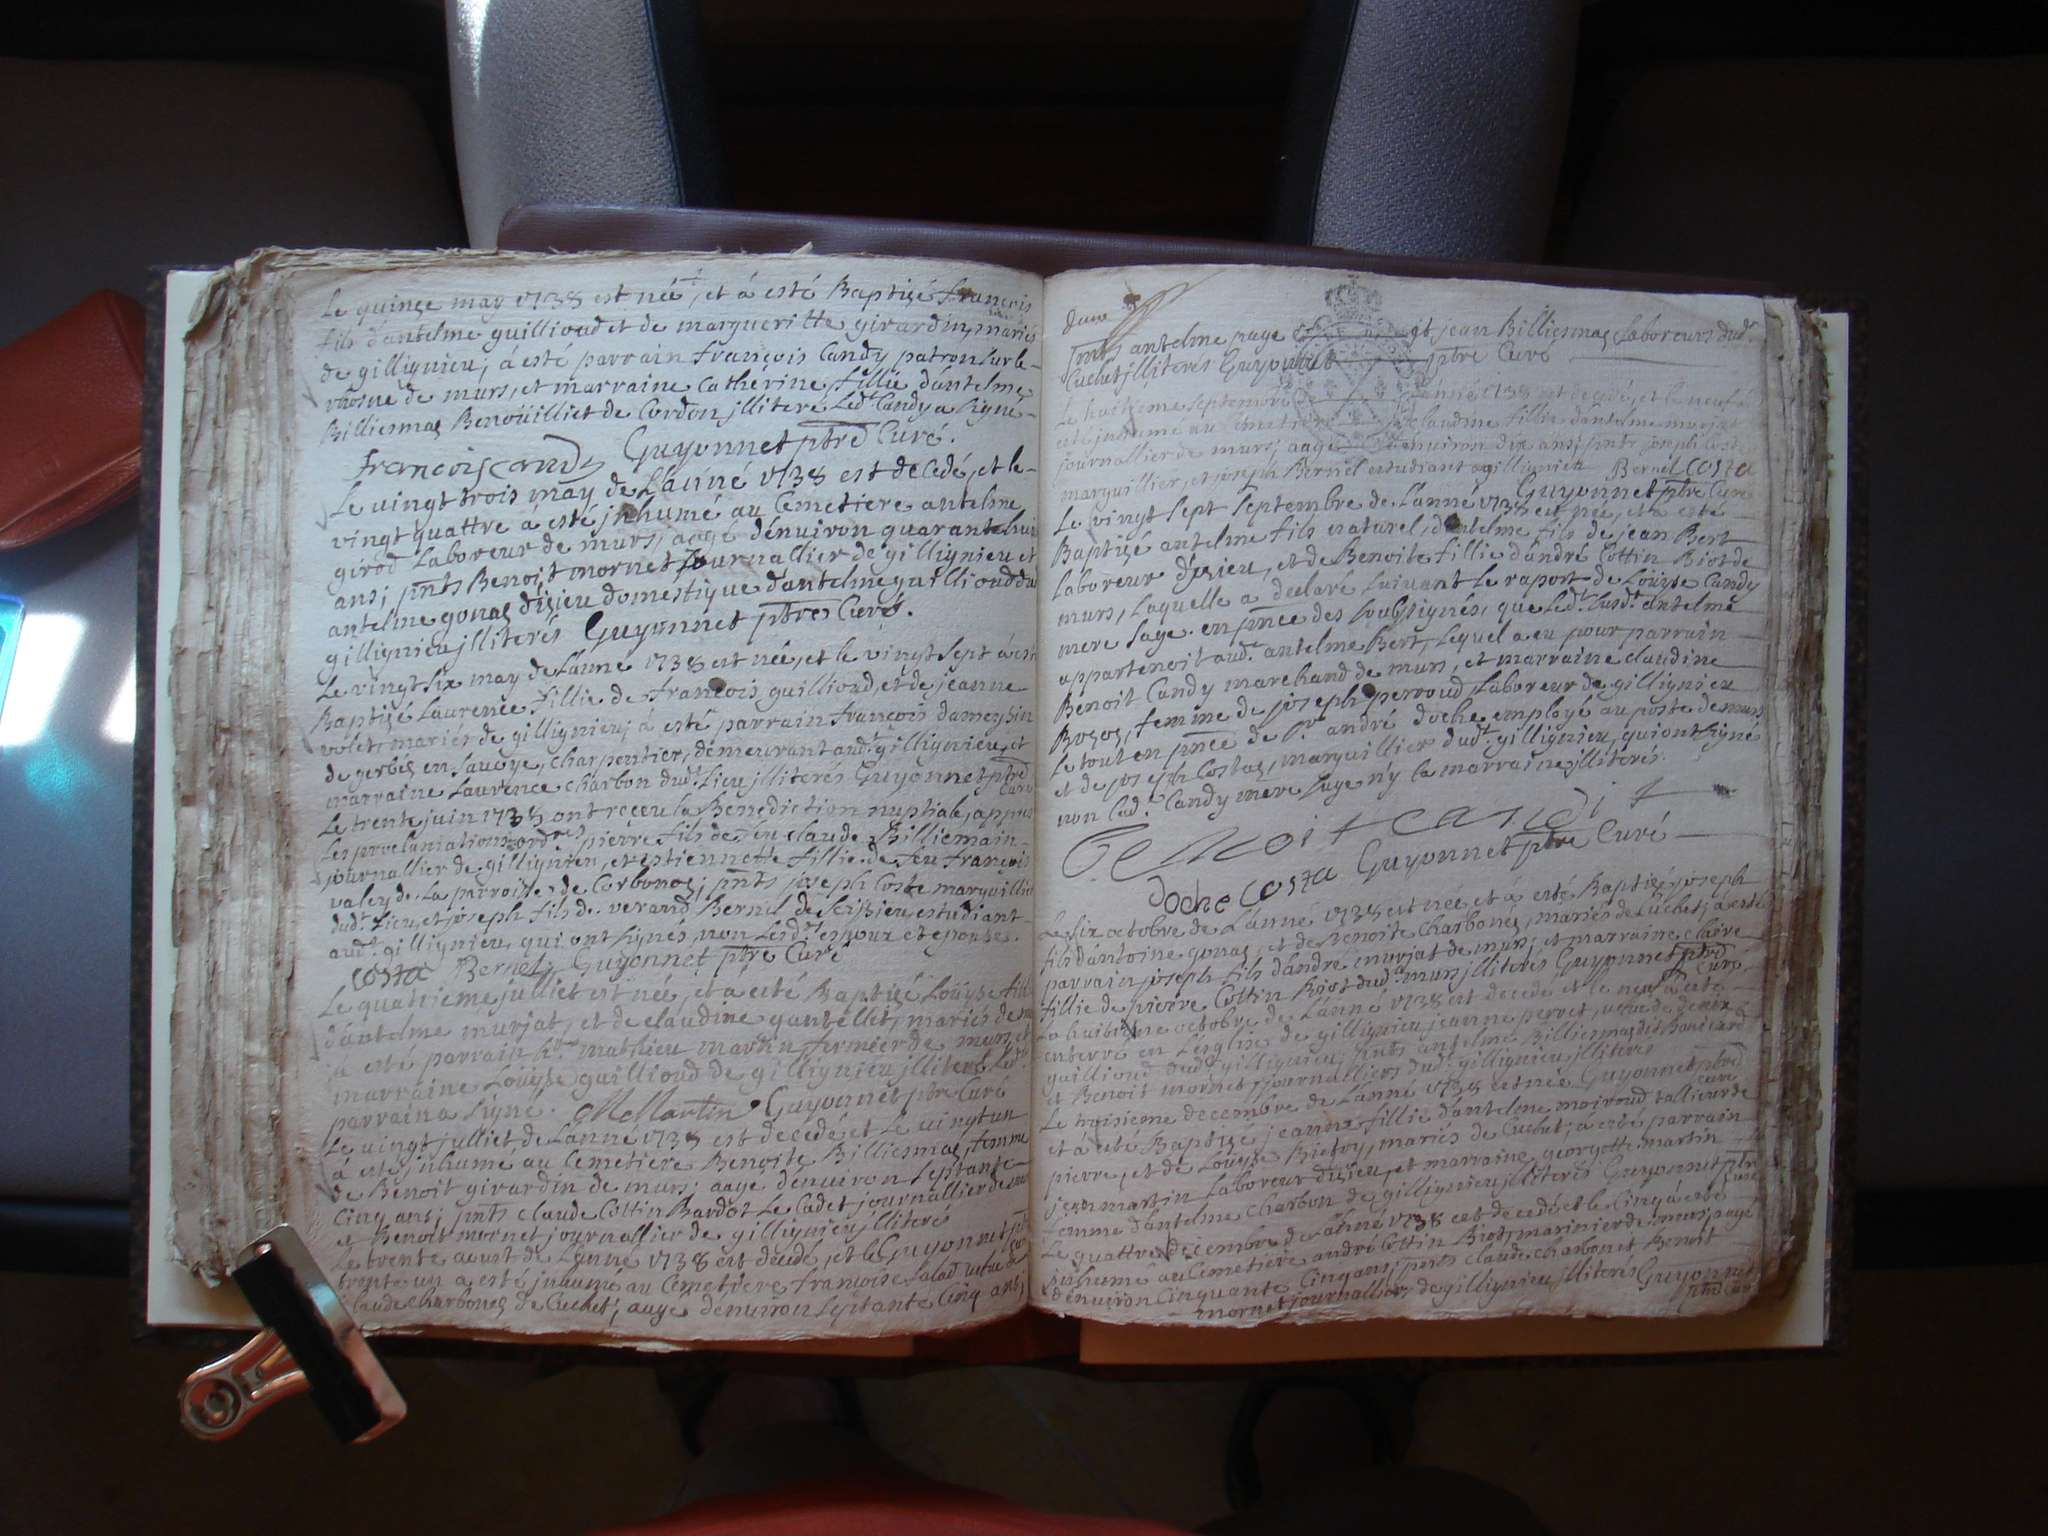 Le quinze may 1738 est née, et à esté Baptizé François
fils d'antelme guillioud et de margueritte girardin, mariés
de gillignieu, à esté parrain François Candy patron sur le
rhosne de murs, et marraine Cathérine fillie d'antelme
Billiemaz Benoüilliet de Cordon jlliteré Led.t Candy a signe
françois candy Guyonnet ptre Curé.
Le vingt trois may de L'anné 1738 est decedé, et le
vingt quattre à esté jnhumé au Cemetiere antelme
girod Laboreur de murs, aagé d'enuiron quarante huit
ans; pnts Benoit mornet Journallier de gillignieu et
antelme gonaz d'izieu domestique d'antelme guillioud du
gillignieu jlliterés Guyonnet ptre Curé.
Le vingt six may de L'anné 1738 est née, et le vingt sept à esté
Baptizé Laurence fillie de françois guillioud, et de jeanne
volet, mariés de gillignieu, à esté parrain françois dameysin
de gerbez en Sauoye, charpentier, demeurant aud.t gillignieu, et
marraine Laurence charbon dud.t Lieu jlliterés Guyonnet ptre
Curé
Le trente juin 1738 ont reçeu la Benediction nuptiale, appres
Les proclamations ord.res pierre fils de feu claude Billiemain
journallier de gillignieu, et estiennette fillie de feu françois
valey de La parroisse de Corbonoz; pnts joseph Coste marguillier
dud.t Lieu, et joseph fils de verand Bernel de Seissieu estudiant
aud.t gillignieu, qui ont signés, non Lesd.ts espoux et epouse.
Costa Bernel Guyonnet ptre Curé
Le quatrieme julliet est née, et a esté Baptizé Loüyse fillie
d'antelme murjat, et de claudine gantellet, mariés de murs
à esté parrain mathieu martin fermier de murs, et
marraine Loüyse guillioud de gillignieu jlliteré Led.t
parrain a signé. Martin Guyonnet ptre Curé
Le vingt julliet de L'anné 1738 est decedé, et Le vingt un
à esté jnhumé au Cemetiere Benoite Billiemaz, femme
de Benoit girardin de murs; aagé d'enuiron septante
cinq ans; pnts claude Cottin Bardot Le Cadet journallier de murs
et Benoit mornet journallier de gillignieu jlliteré
Le trente aoust de L'anné 1738 est decedé, et le Guyonnet ptre
trente un a esté jnhumé au Cemetiere françoise Salad veuue de
claude charbonez de Cuchet; aagé d'enuiron septante Cinq ans,
pnts antelme page jean Billiemaz Laboreurs dud.t
Cuchet jlliterés Guyonnet ptre Curé
Le huitieme septembre L'anné 1738 est decedé, et le neuf à
esté jnhumé au Cemetiere claudine fillie d'antelme murjat
journallier de murs; aagé d'enuiron dix ans; pnts joseph Cost
marguillier, et joseph Bernel estudiant a gillignieu Bernel Costa
Guyonnet ptre Curé
Le vingt sept septembre de L'anné 1738 est née, et a esté
Baptizé antelme fils naturel, d'antelme fils de jean Bert
Laboreur d'izieu, et de Benoite fillie d'andré Cottin Biot de
murs, Laquelle a declaré suiuant Le raport de Loüyse Candy
mere sage en pnce des soubsignés, que Led.t antelme
appartenoit aud.t antelme Bert, Lequel a eu pour parrain
Benoit Candy marchand de murs, et marraine claudine
Bozoz, femme de joseph perroud Laboreur de gillignieu
Le tout en pnce de S.r andré doche employé au poste de murs,
et de joseph Costaz, marguillier dud.t gillignieu, qui ont signé
non Lad.t Candy mere sage n'y la marraine jlliterés.
Benoit candi
doche costa Guyonnet ptre Curé
Le six octobre de L'anné 1738 est née et à esté Baptizé joseph
fils d'antoine gonaz, et de Benoite charbonez, mariés de Cuchet, à esté
parrain joseph fils d'andré murjat de murs; et marraine claire
fillie de pierre Cottin Biot dud.t murs jlliterés Guyonnet ptre
Curé
Le huitieme octobre de L'anné 1738 est decedé et le neuf à esté
enterré en L'église de gillignieu jeanne pervet, veuue de
guillioud dud.t gillignieu; pnts antelme Billiemaz dit Bouvard
et Benoit mornet, journalliers dud.t gillignieu jlliterés
Guyonnet ptre
Curé
Le troisieme decembre de L'anné 1738 est née
et à esté Baptizé jeanne fillie d'antelme moiroud tallieur de
pierre, et de Loüyse Bietry, mariés de Cuchet; à esté parrain
jean martin Laboreur d'izieu, et marraine georgette martin
femme d'antelme charbon de gillignieu jlliterés Guyonnet ptre
Curé
Le quattre decembre de L'anné 1738 est decedé et le Cinq à esté
jnhumé au Cemetiere andré Cottin Biot, marinier de murs, aagé
d'enuiron Cinquante Cinq ans; pnts claude charbonet, Benoit
mornet journallier de gillignieu jlliterés Guyonnet
ptre Curé